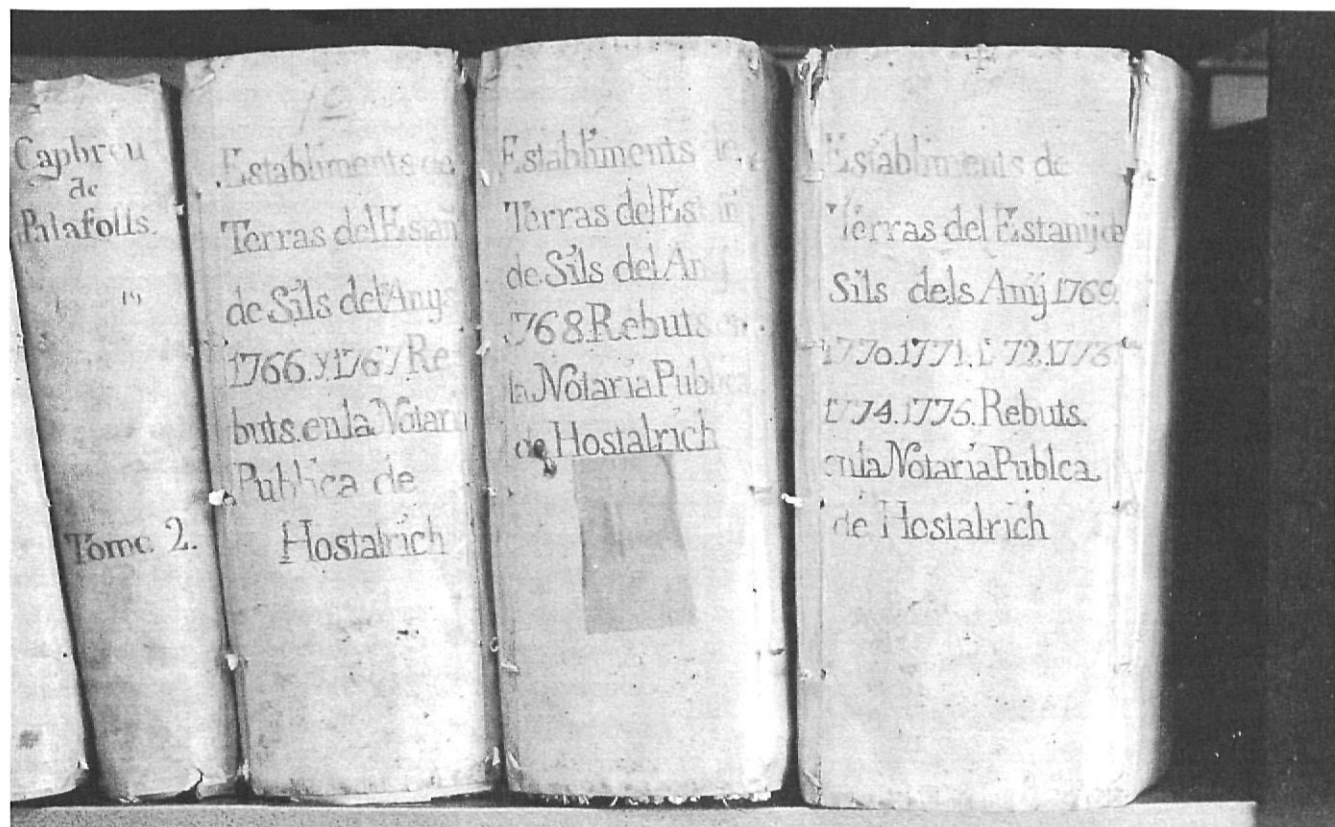 Capbreu
de
Palafolls.
Tomo. 2.
Establiments de
Terras del Estañ
de Sils del Anys
1766. y 1767 Re
buts. en la Notaria
Publica de
Hostalrich
Establiments de
Terras del Estañ
de Sils del Anÿ
1768 Rebuts en
la Notaria Publica
de Hostalrich
Establiments de
Terras del Estanÿ de
Sils dels Anÿ 1769.
1770. 1771. 1772. 1773
1774. 1775. Rebuts.
en la Notaria Publca
de Hostalrich